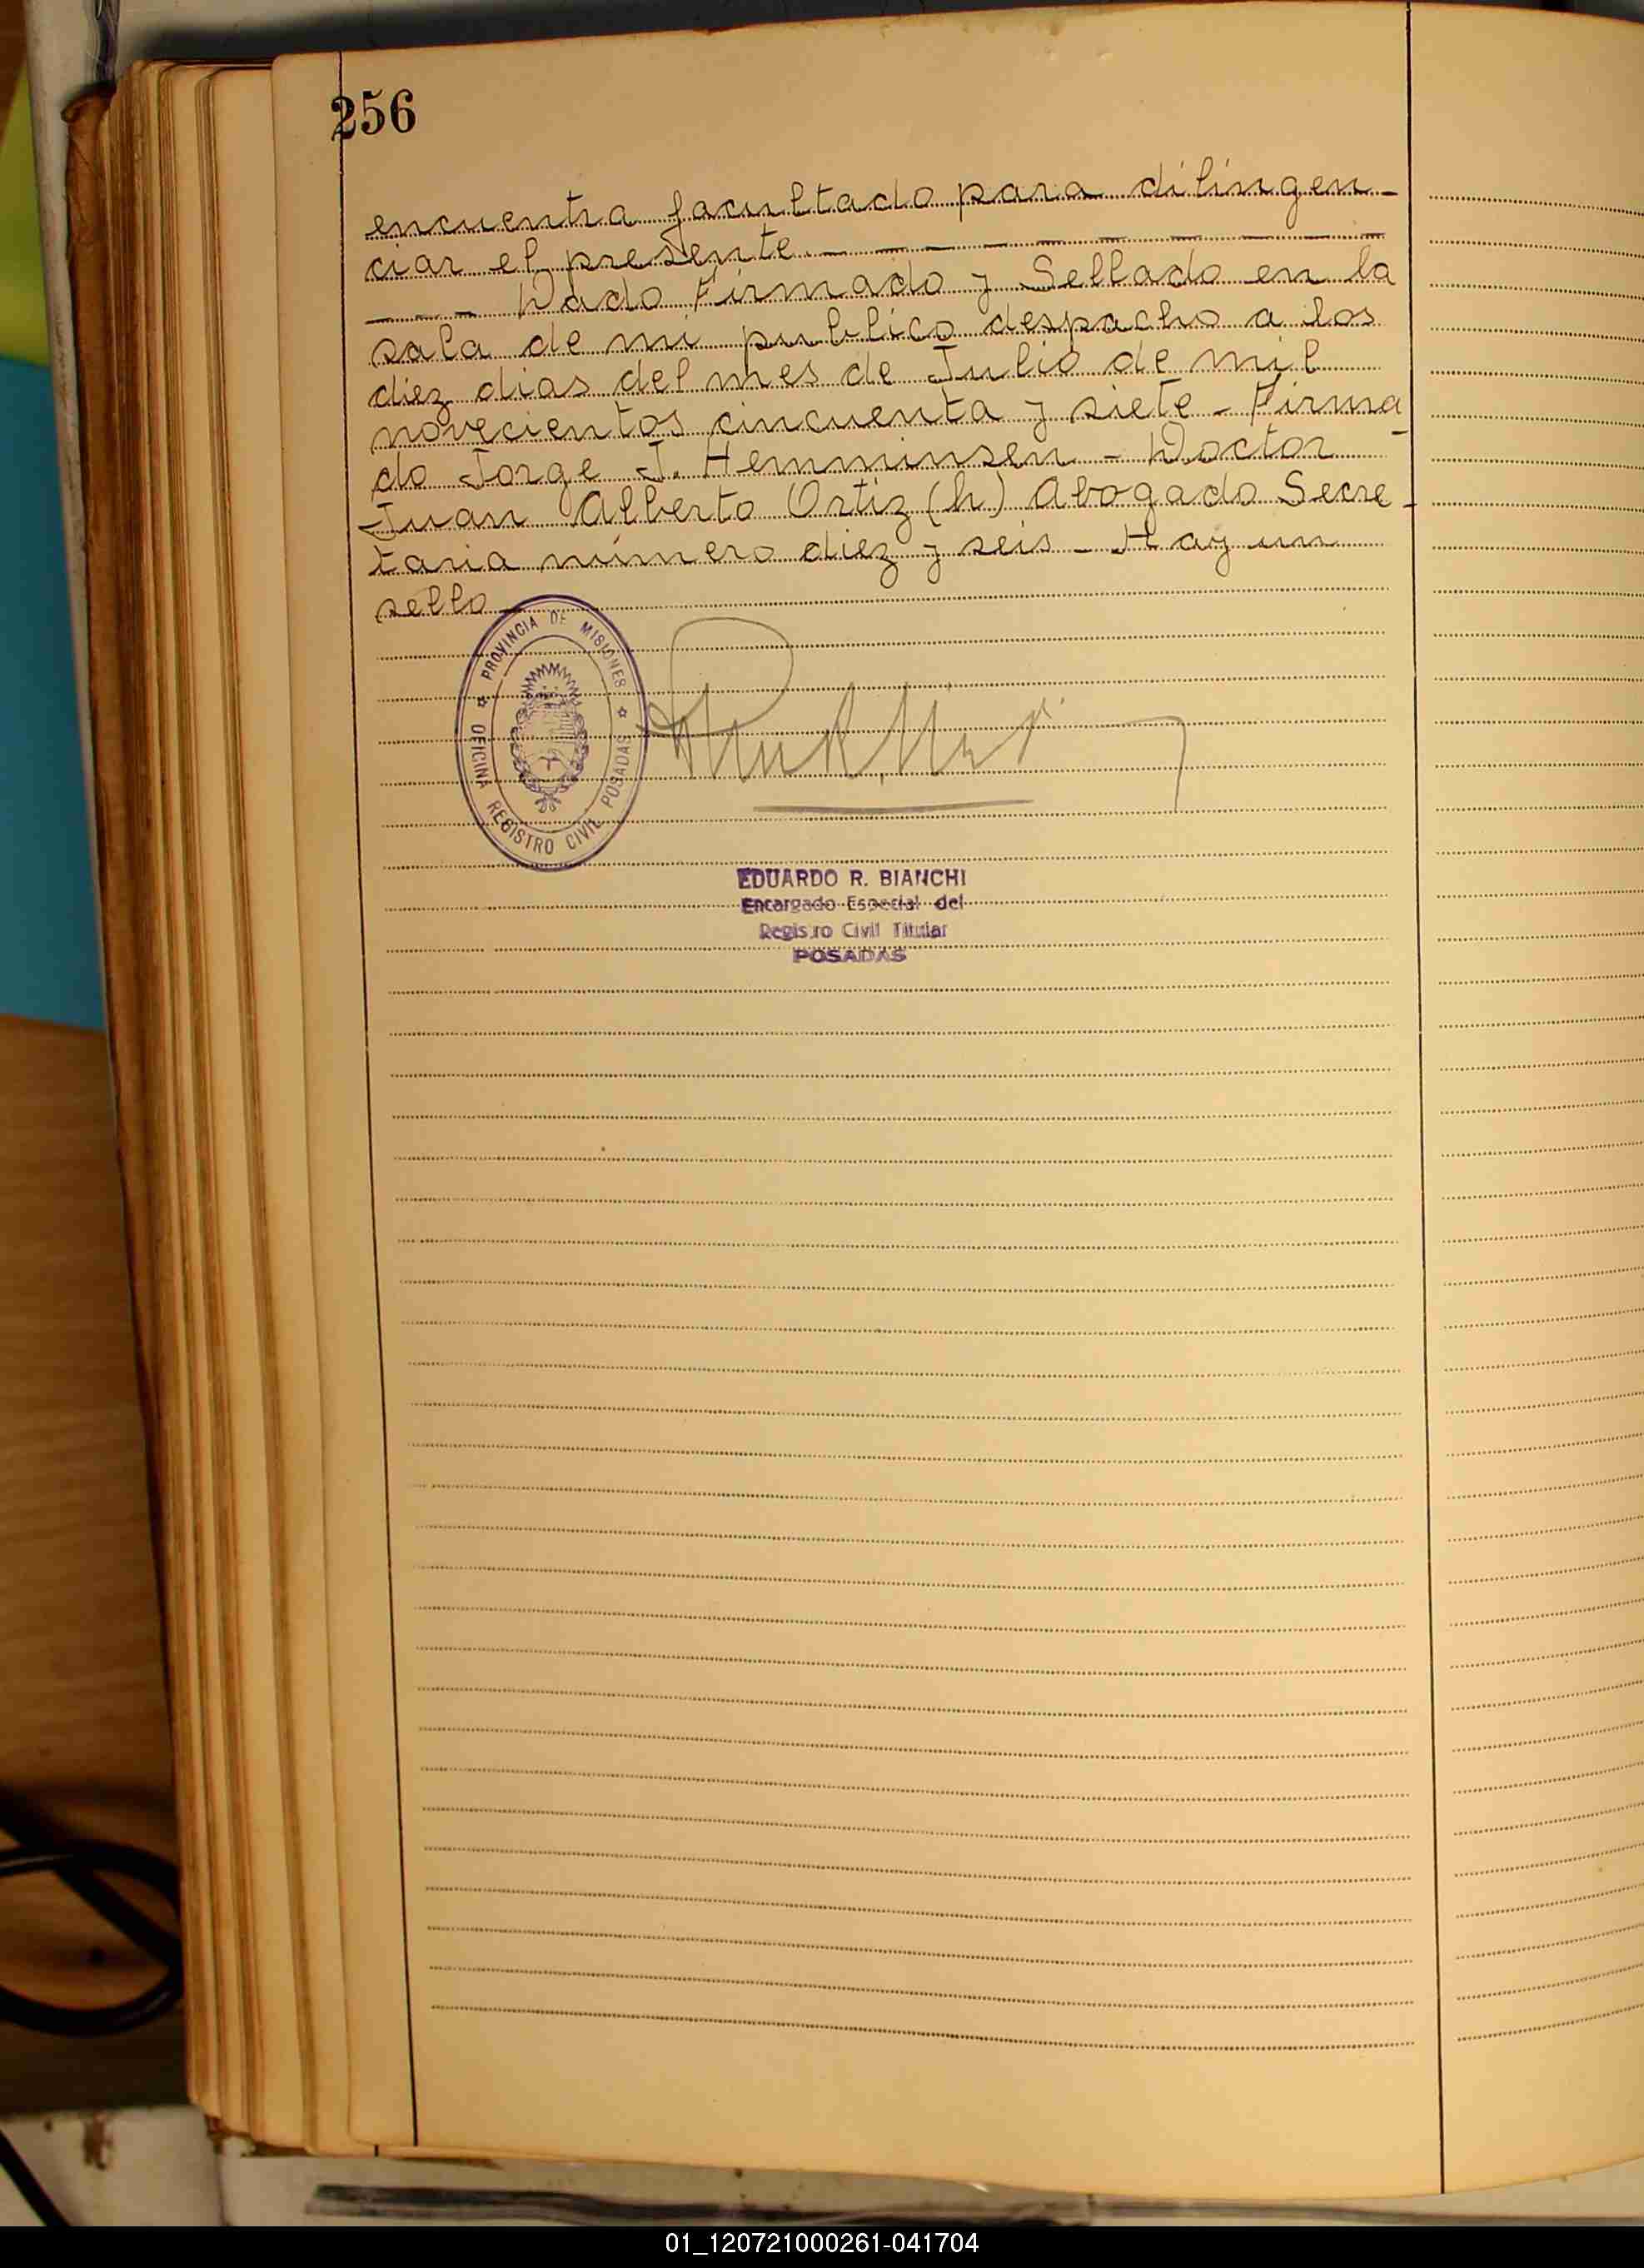 256
encuentra facultado para dilingen-
ciar el presente. - - - - - - - - -
- - - Dado Firmado y Sellado en la
sala de mi publico despacho a los
diez dias del mes de Julio de mil
novecientos cincuenta y siete - Firma-
do Jorge J. Hemminsen - Doctor
Juan Alberto Ortiz (h) Abogado Secre-
taria número diez y seis - Hay un
sello -
PROVINCIA DE MISIONES
OFICINA REGISTRO CIVIL POSADAS
EDUARDO R. BIANCHI
Encargado Especial del
Registro Civil Titular
POSADAS
01_120721000261-041704